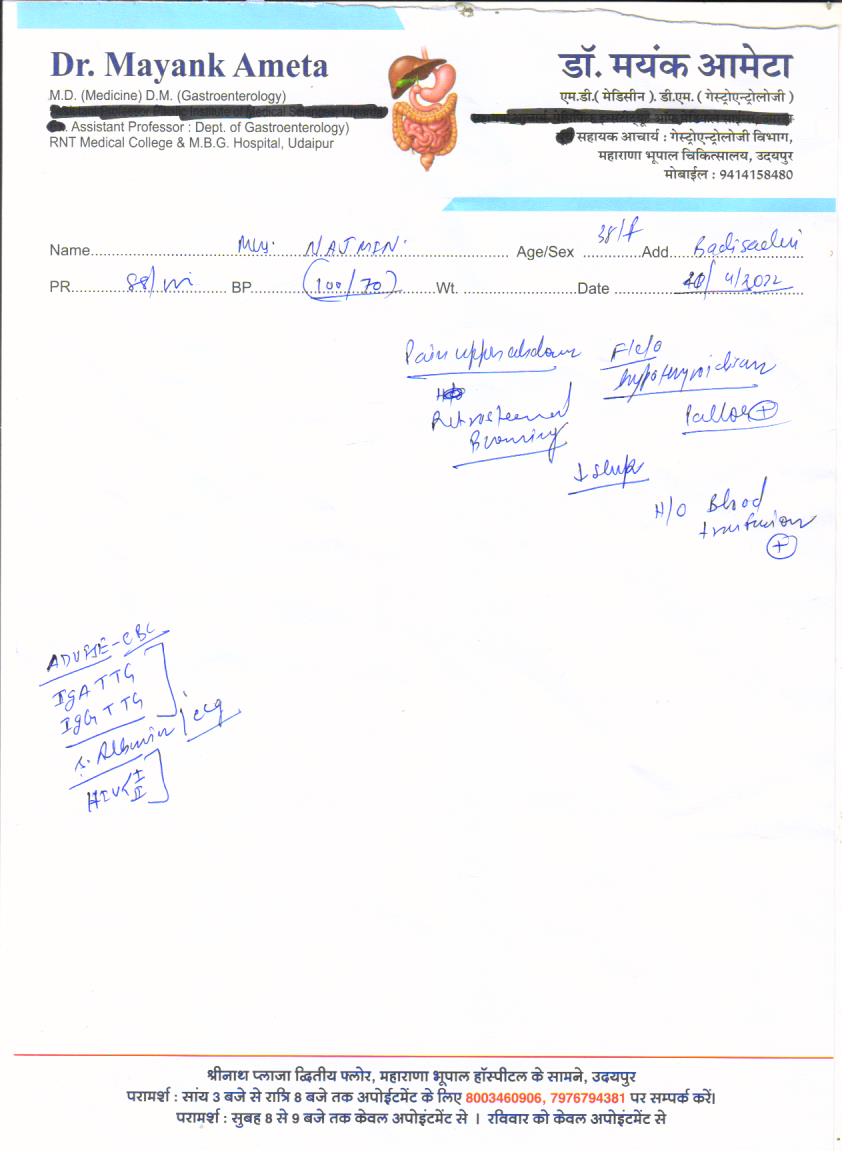 Dr. Mayank Ameta
M.D. (Medicine) D.M. (Gastroenterology)
Assistant Professor : Dept. of Gastroenterology)
RNT Medical College & M.B.G. Hospital, Udaipur
डॉ. मयंक आमेटा
एम.डी.( मेडिसीन ). डी.एम. ( गेस्ट्रोएन्ट्रोलोजी )
सहायक आचार्य : गेस्ट्रोएन्ट्रोलोजी विभाग,
महाराणा भूपाल चिकित्सालय, उदयपुर
मोबाईल : 9414158480
Name NAJMIN. Age/Sex 38/f Add
PR 88/mi BP (100/70) Wt. Date 20/4/2022
Pain upper abdomen
Retrosternal
Burning
F/c/o
hypothyroidism
Pallor +
↓ sleep
H/O Blood
transfusion
+
ADVISE - CBC
IGA TTG
IgG TTG
S. Albumin / ECG
HIV I
II
श्रीनाथ प्लाजा द्वितीय फ्लोर, महाराणा भूपाल हॉस्पीटल के सामने, उदयपुर
परामर्श : सांय 3 बजे से रात्रि 8 बजे तक अपोईंटमेंट के लिए 8003460906, 7976794381 पर सम्पर्क करें।
परामर्श : सुबह 8 से 9 बजे तक केवल अपोइंटमेंट से । रविवार को केवल अपोइंटमेंट से